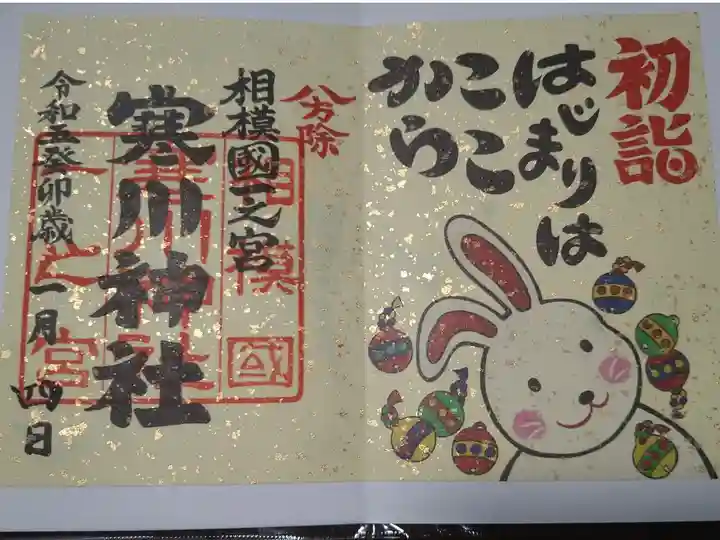 初詣
はじまりは
ここ
から
八方除
相模國一之宮
寒川神社
令和五癸卯歳 一月 四日
相模國
寒川神社
一之宮